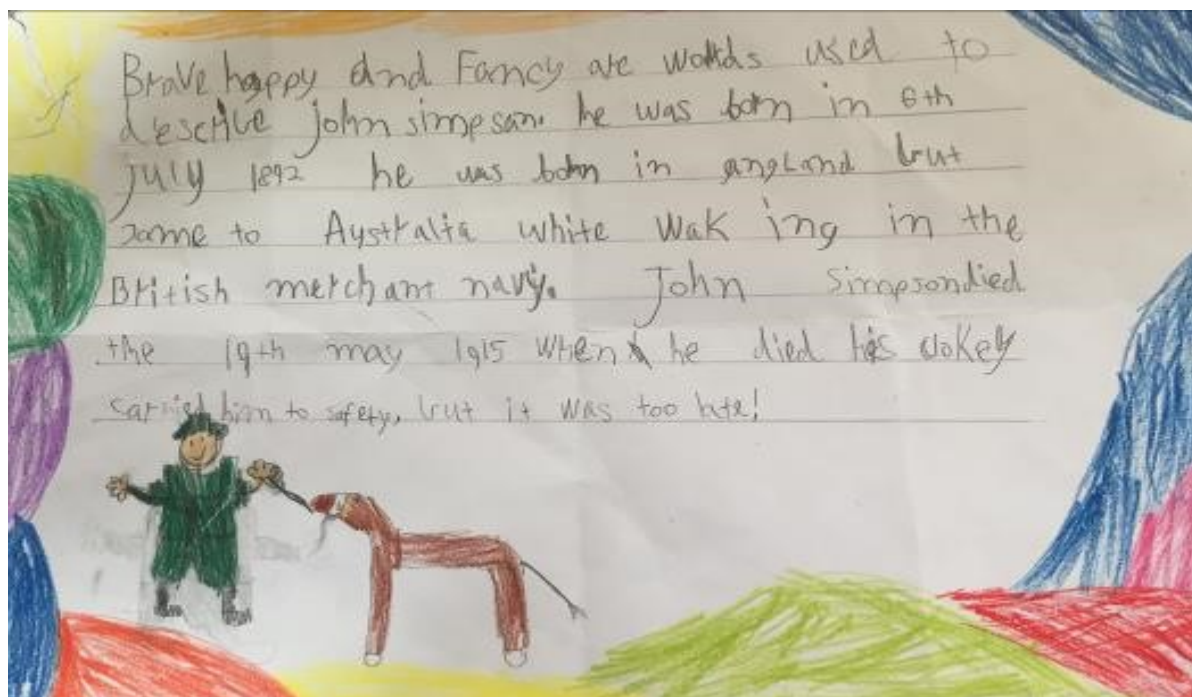 Brave happy and Fancy are words used to
descrive john simpson. he was born in 6th
july 1892 he was born in angland but
came to Australia white wak ing in the
British merchant navy. John Simpsondied
the 19th may 1915 when he died his dokey
carried him to safety, but it was too late!